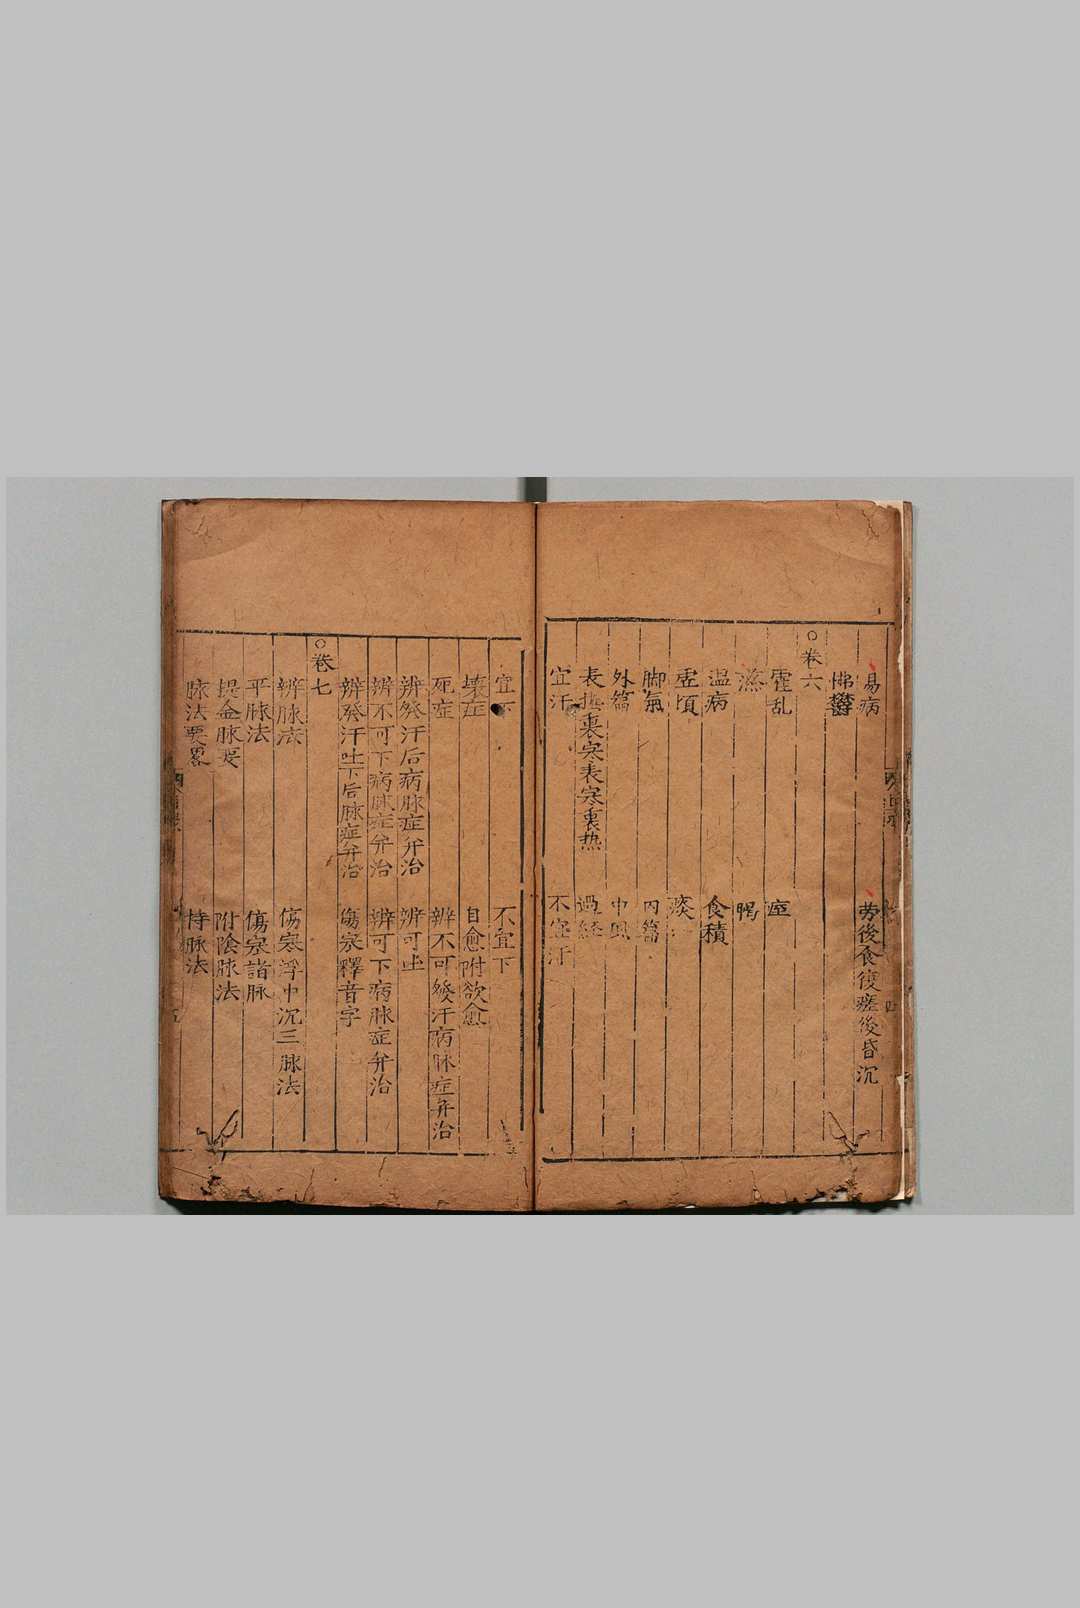 易病 劳後食復瘥後昏沉
怫欝
○卷六
霍乱 痓
濕 暍
温病 食積
虚煩 痰
脚氣 内篇
外篇
表 裏寒表寒裏热 過経
宜汗 不宜汗
宜下 不宜下
壞症 自愈附欲愈
死症 辨不可發汗病脉症弁治
辨發汗后病脉症弁治 辨可吐
辨不可下病脉症弁治 辨可下病脉症弁治
辨發汗吐下后脉症弁治 傷寒釋音字
○卷七
辨脉法 傷寒浮中沉三脉法
平脉法 傷寒諸脉
提金脉要 附陰脉法
脉法要畧 持脉法